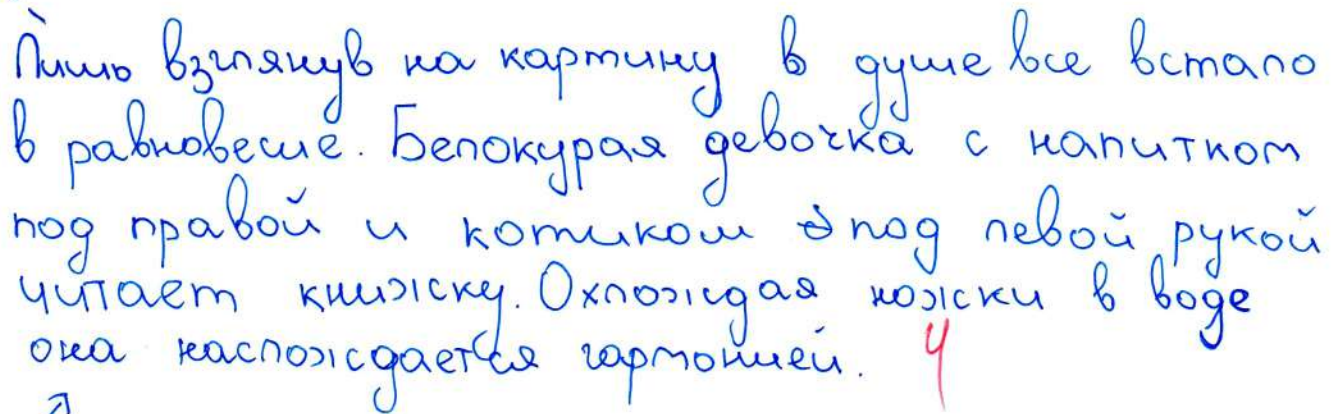 Лишь взглянув на картину в душе все встало
в равновесие. Белокурая девочка с напитком
под правой и котиком под левой рукой
читает книжку. Охлождая ножки в воде
она наслождается гармонией. 4